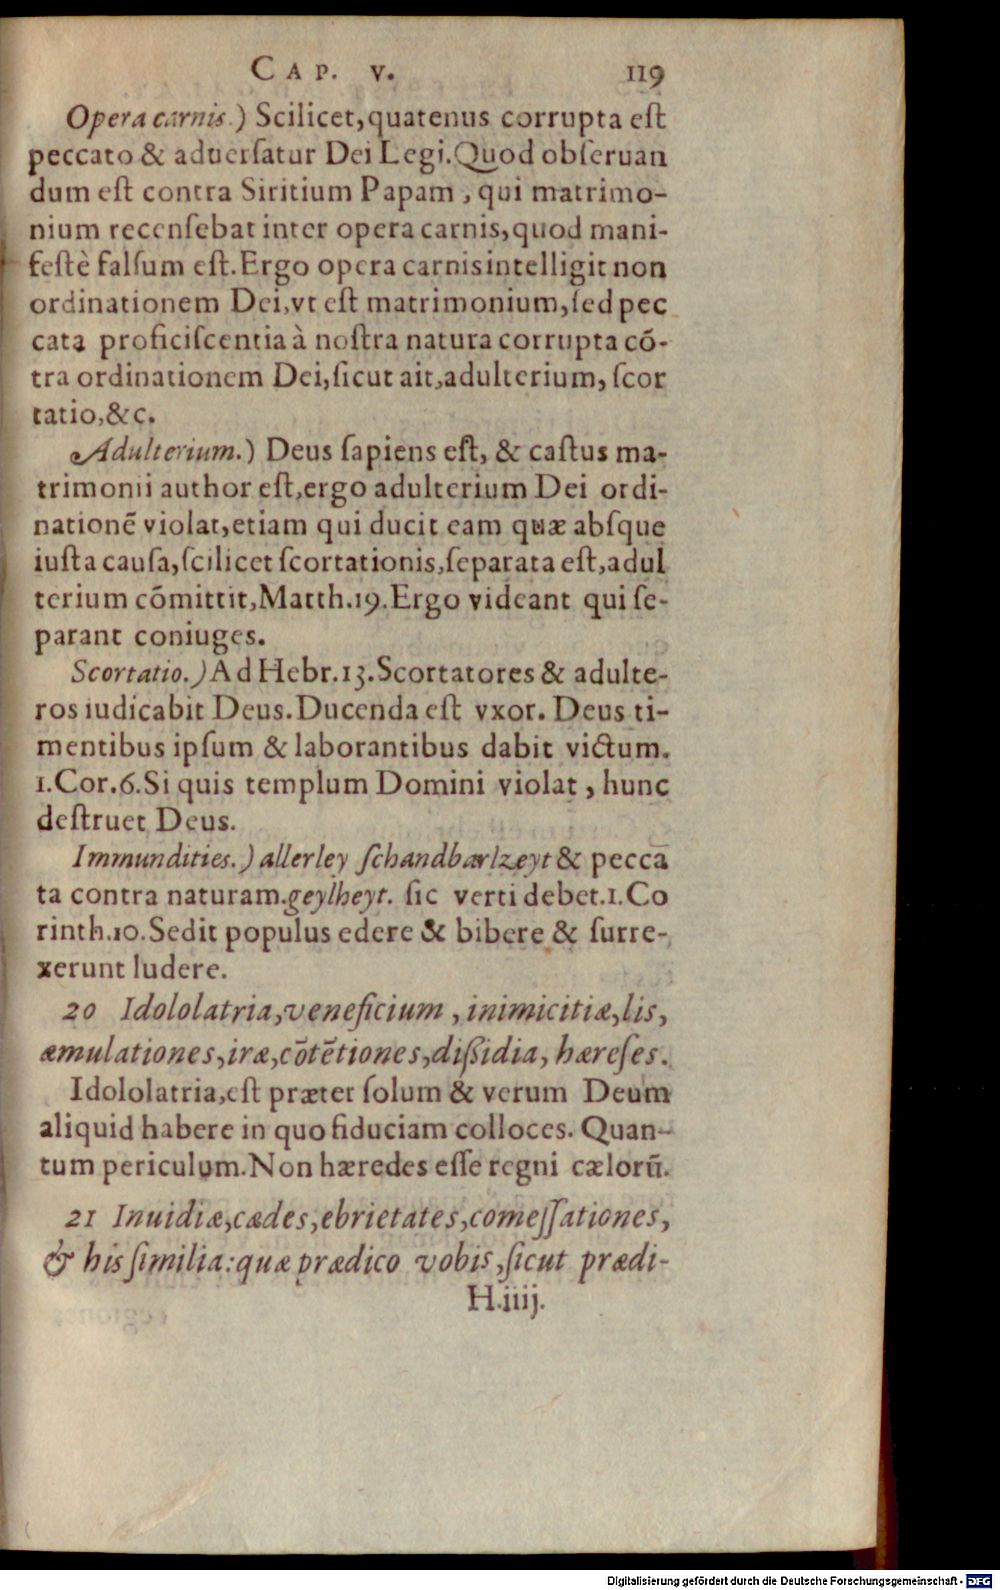 CAP. V. 119
Opera carnis.) Scilicet,quatenus corrupta eſt
peccato & aduerſatur Dei Legi.Quod obſeruan
dum eſt contra Siritium Papam , qui matrimo-
nium recenſebat inter opera carnis,quod mani-
feſtè falſum eſt.Ergo opera carnis intelligit non
ordinationem Dei,vt eſt matrimonium,ſed pec
cata proficiſcentia à noſtra natura corrupta cõ-
tra ordinationem Dei,ſicut ait,adulterium, ſcor
tatio,&c.
Adulterium.) Deus ſapiens eſt, & caſtus ma-
trimonii author eſt,ergo adulterium Dei ordi-
nationẽ violat,etiam qui ducit eam quæ abſque
iuſta cauſa,ſcilicet ſcortationis,ſeparata eſt,adul
terium cõmittit,Matth.19.Ergo videant qui ſe-
parant coniuges.
Scortatio.) Ad Hebr.13.Scortatores & adulte-
ros iudicabit Deus.Ducenda eſt vxor. Deus ti-
mentibus ipſum & laborantibus dabit victum.
1.Cor.6.Si quis templum Domini violat , hunc
deſtruet Deus.
Immundities.) allerley ſchandbarlzeyt & pecca
ta contra naturam.geylheyt. ſic verti debet.1.Co
rinth.10.Sedit populus edere & bibere & ſurre-
xerunt ludere.
20 Idololatria,veneficium , inimicitiæ,lis,
æmulationes,iræ,cõtẽtiones,diſſidia, hæreſes.
Idololatria,eſt præter ſolum & verum Deum
aliquid habere in quo fiduciam colloces. Quan-
tum periculum.Non hæredes eſſe regni cælorũ.
21 Inuidiæ,cædes,ebrietates,comeſſationes,
& his ſimilia:quæ prædico vobis,ſicut prædi-
H.iiij.
Digitalisierung gefördert durch die Deutsche Forschungsgemeinschaft - DFG